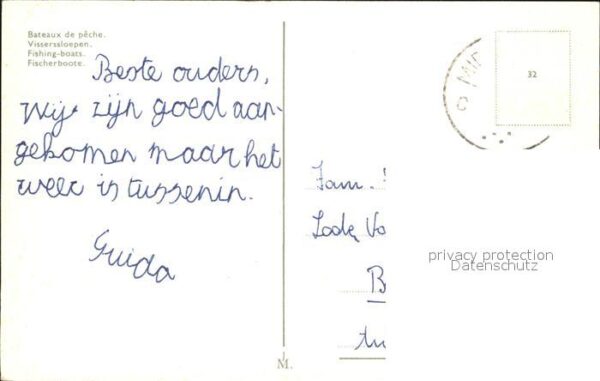 Bateaux de pêche.
Visserssloepen.
Fishing-boats.
Fischerboote.
Beste ouders,
Wij zijn goed aan-
gekomen maar het
weer is tussenin.
Guida
32
MID
Fam.
Lode Vo
B
privacy protection
Datenschutz
M.